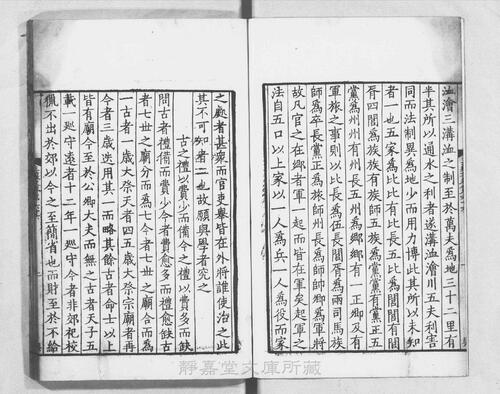 洫澮三溝洫之制至於萬夫爲地三十二里有
半其所以通水之利者遂溝洫澮川五夫利害
同而法制異爲地少而用力博此其所以未知
者一也五家爲比比有比長五比爲閭閭有閭
胥四閭爲族族有族師五族爲黨黨有黨正五
黨爲州州有州長五州爲鄉鄉有一正卿及有
軍旅之事則以比長爲伍長閭胥爲兩司馬族
師爲卒長黨正爲旅師州長爲師師鄉爲軍將
故凡官之在鄉者軍一起而皆在軍矣起軍之
法自五口以上家以一人爲兵一人爲役而家
之處者甚衆而官吏舉皆在外將誰使治之此
其不可知者二也故願與學者究之
古之禮以費少而備今之禮以費多而缺
問古者禮備而費少今者費愈多而禮愈缺古
者七世之廟分而爲七今者七世之廟合而爲
一古者一歲大祭天者四五歲大祭宗廟者再
今者三歲迭用其一而略其餘古者命士以上
皆有廟今至於公卿大夫而無之古者天子五
載一巡守遠者十二年一巡守今者非郊祀校
獵不出於郊以今之至簡省也而財至於不給
靜嘉堂文庫所藏